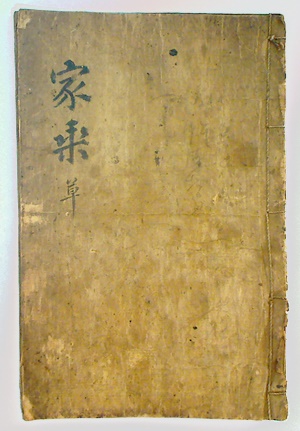 家乘
草